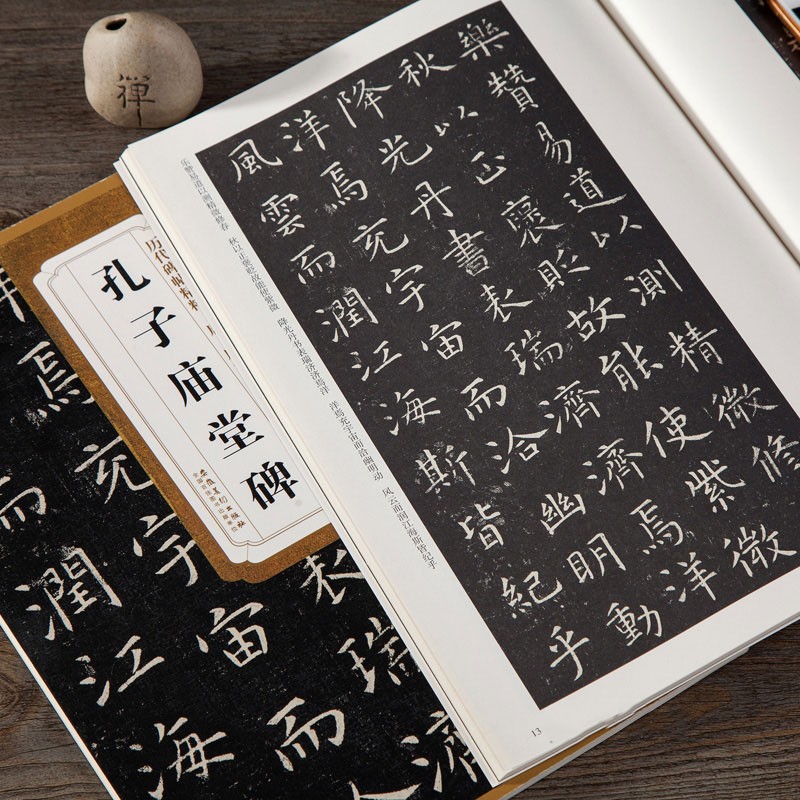 禅
樂賛易道以測精微修
秋以正褒貶故能使紫微
降光丹書表瑞濟濟焉洋
洋焉充宇宙而洽幽明動
風雲而潤江海斯皆紀乎
乐赞易道以测精微修春 秋以正褒贬故能使紫微 降光丹书表瑞济济焉洋 洋焉充宇宙而洽幽明动 风云而润江海斯皆纪乎
13
历代碑帖精粹
孔子庙堂碑
安徽美术出版社
全国百佳图书出版单位
表瑞濟
焉充宇宙而
而潤江海